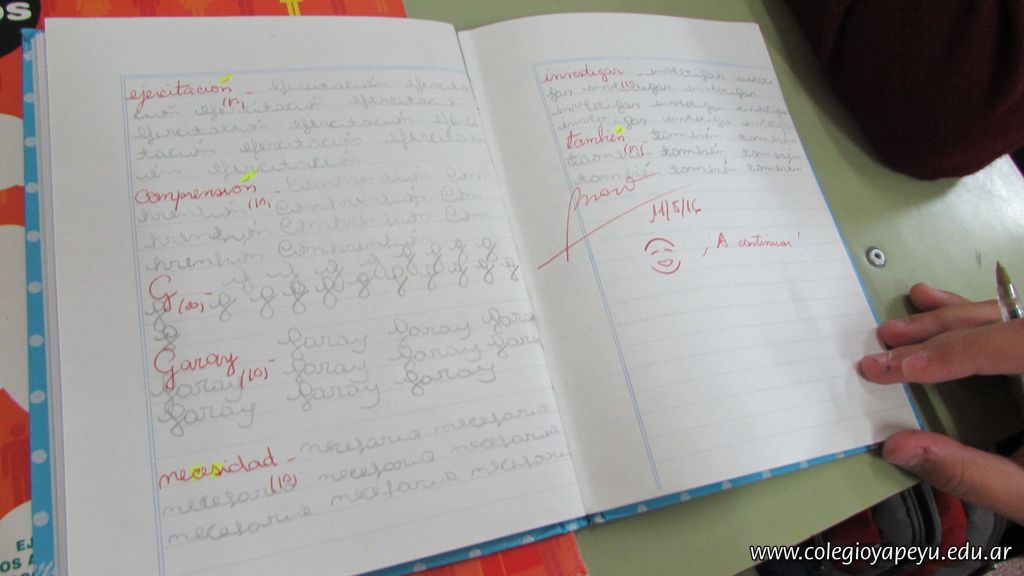 ejercitación - ejercitación ejercita
ción ejercitación ejercitación
(10)
ejercitación ejercitación ejerci
tación ejercitación ejercitac
ión ejercitación
comprensión - comprensión com
(10)
prensión comprensión com
prensión comprensión com
prensión comprensión
G (20) - g g g g g g g g
Garay - Garay Garay Garay
Garay (10) Garay Garay Garay
Garay Garay Garay
necesidad - necesaria necesaria
necesaria (10) necesaria necesaria
necesaria necesaria necesari
investigar - investigar investi
gar investigar investigar
(10)
investigar investigar investiga
investigar investiga investiga
también - también también
(10)
también también también
también también también
11/8/16
¡A continuar!
OS
EJ
OS A
www.colegioyapeyu.edu.ar